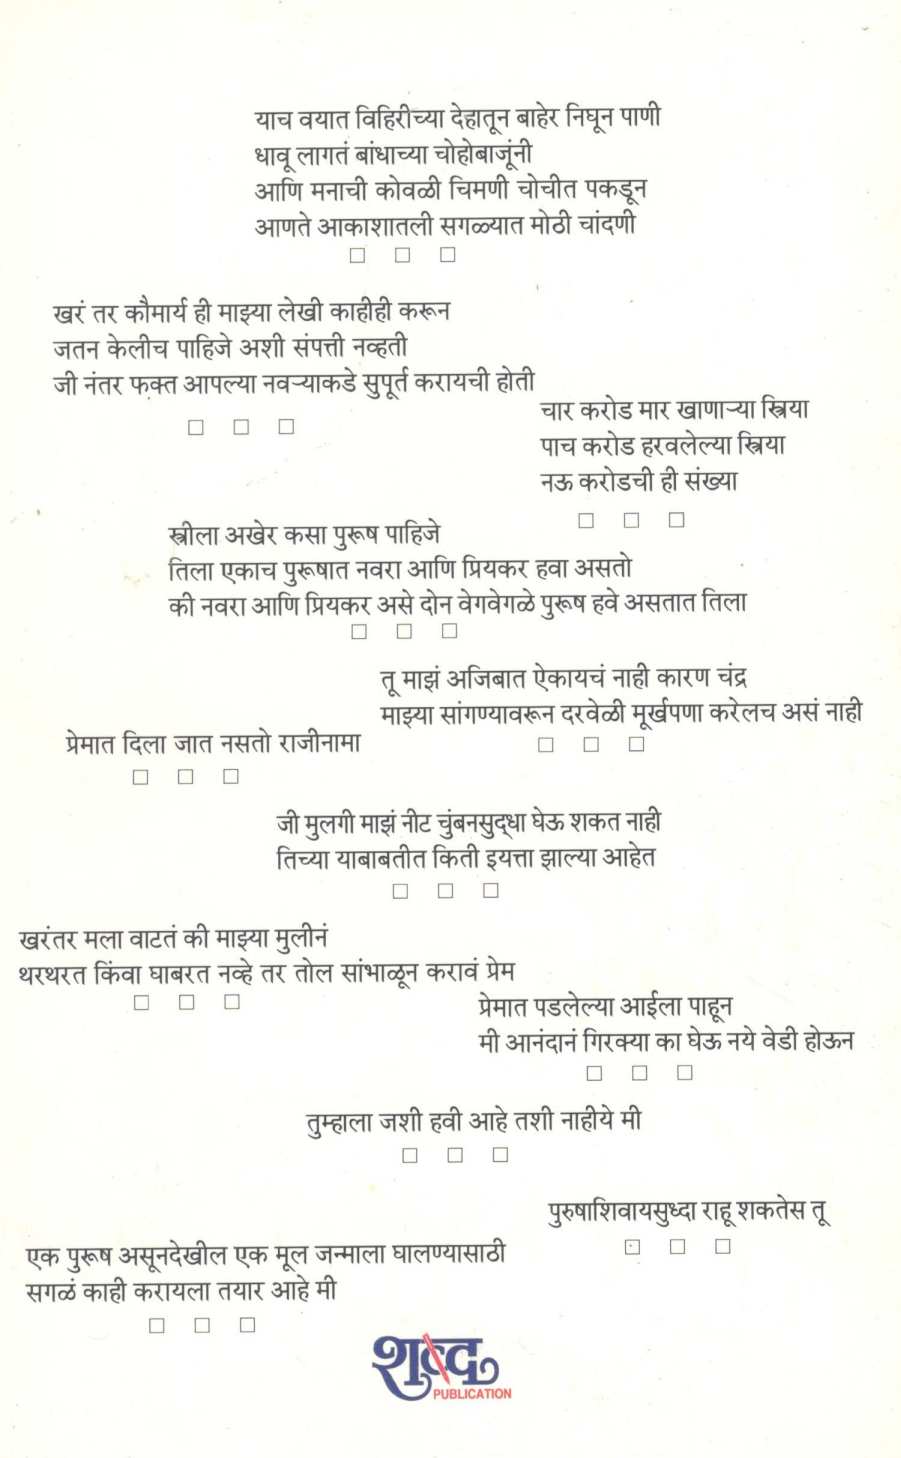 याच वयात विहिरीच्या देहातून बाहेर निघून पाणी
धावू लागतं बांधाच्या चोहोबाजूंनी
आणि मनाची कोवळी चिमणी चोचीत पकडून
आणते आकाशातली सगळ्यात मोठी चांदणी
□ □ □
खरं तर कौमार्य ही माझ्या लेखी काहीही करून
जतन केलीच पाहिजे अशी संपत्ती नव्हती
जी नंतर फक्त आपल्या नवऱ्याकडे सुपूर्त करायची होती
□ □ □
चार करोड मार खाणाऱ्या स्त्रिया
पाच करोड हरवलेल्या स्त्रिया
नऊ करोडची ही संख्या
□ □ □
स्त्रीला अखेर कसा पुरूष पाहिजे
तिला एकाच पुरूषात नवरा आणि प्रियकर हवा असतो
की नवरा आणि प्रियकर असे दोन वेगवेगळे पुरूष हवे असतात तिला
□ □ □
तू माझं अजिबात ऐकायचं नाही कारण चंद्र
माझ्या सांगण्यावरून दरवेळी मूर्खपणा करेलच असं नाही
□ □ □
प्रेमात दिला जात नसतो राजीनामा
□ □ □
जी मुलगी माझं नीट चुंबनसुद्‌धा घेऊ शकत नाही
तिच्या याबाबतीत किती इयत्ता झाल्या आहेत
□ □ □
खरंतर मला वाटतं की माझ्या मुलीनं
थरथरत किंवा घाबरत नव्हे तर तोल सांभाळून करावं प्रेम
□ □ □
प्रेमात पडलेल्या आईला पाहून
मी आनंदानं गिरक्या का घेऊ नये वेडी होऊन
□ □ □
तुम्हाला जशी हवी आहे तशी नाहीये मी
□ □ □
पुरुषाशिवायसुध्दा राहू शकतेस तू
□ □ □
एक पुरूष असूनदेखील एक मूल जन्माला घालण्यासाठी
सगळं काही करायला तयार आहे मी
□ □ □
शब्द
PUBLICATION